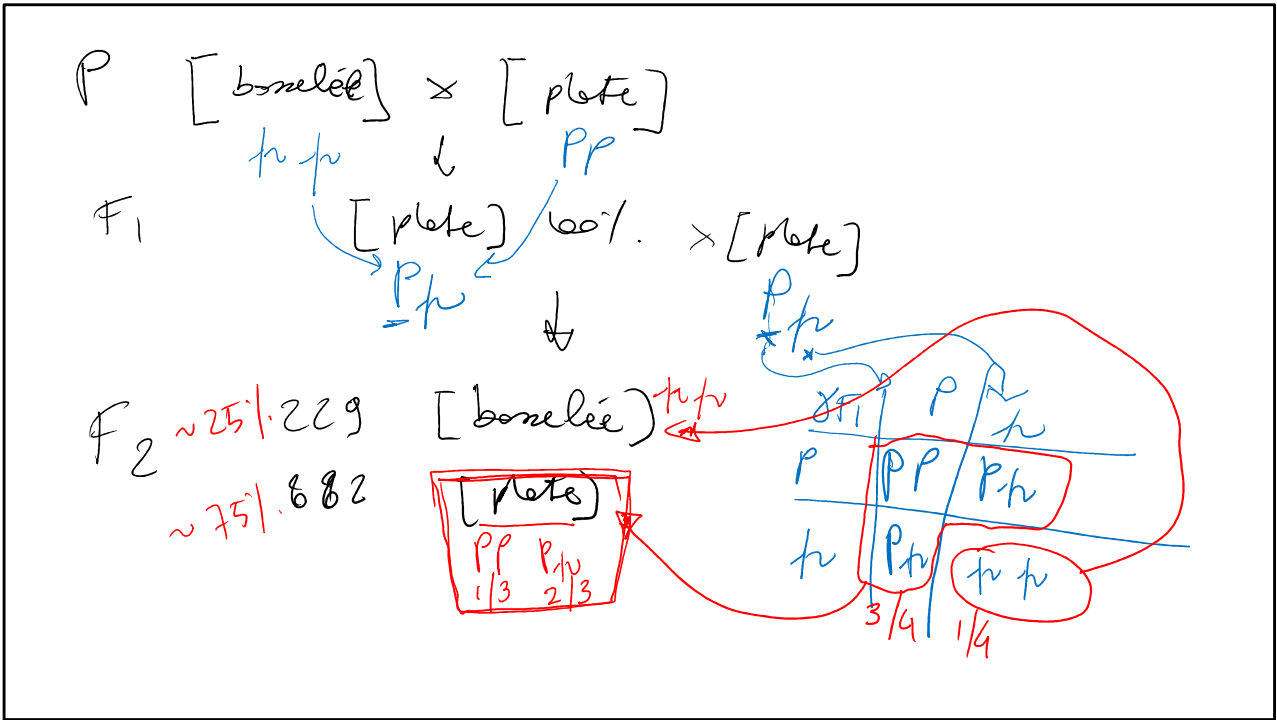 P [bosselée] x [plate]
p p PP
F1 [plate] 100%. x [plate]
Pp P p
F2 ~25%. 229 [bosselée] pp
~75%. 882 [plate]
PP Pp
1/3 2/3
γF1 P p
P PP Pp
p Pp p p
3/4 1/4